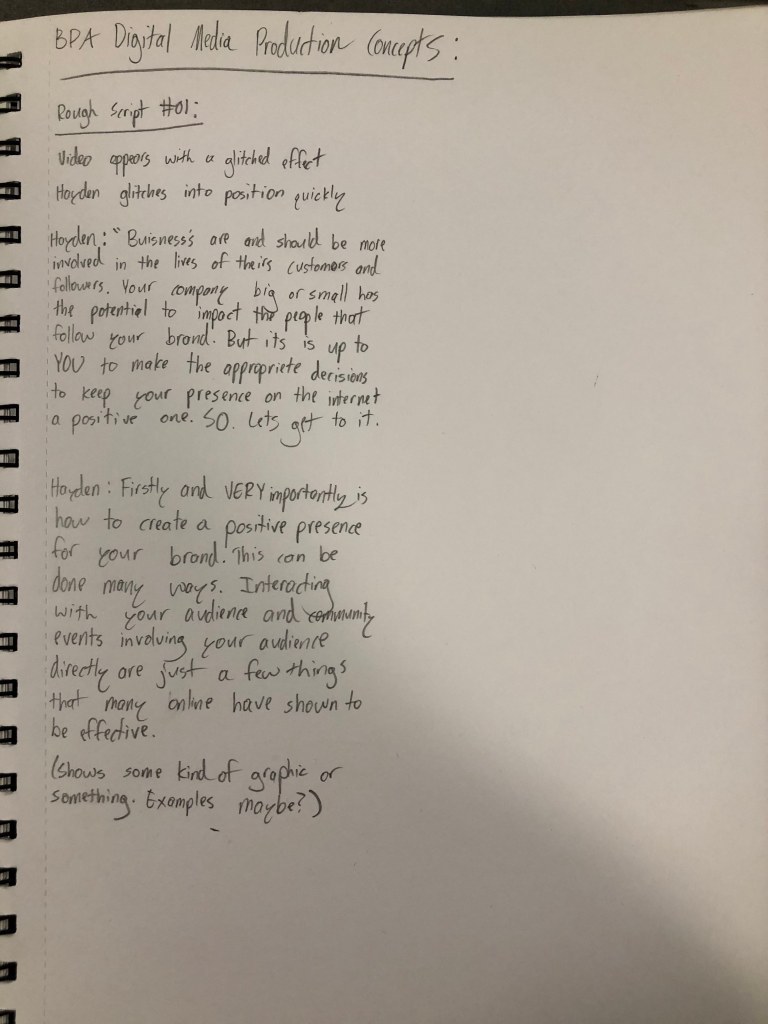 BPA Digital Media Production Concepts:
Rough Script #01:
Video appears with a glitched effect
Hayden glitches into position quickly
Hayden: "Buisness's are and should be more
involved in the lives of theirs customers and
followers. Your company big or small has
the potential to impact the people that
follow your brand. But its is up to
YOU to make the appropriete decisions
to keep your presence on the internet
a positive one. SO. Lets get to it.
Hayden: Firstly and VERY importantly is
how to create a positive presence
for your brand. This can be
done many ways. Interacting
with your audience and community
events involving your audience
directly are just a few things
that many online have shown to
be effective.
(shows some kind of graphic or
something. Examples maybe?)